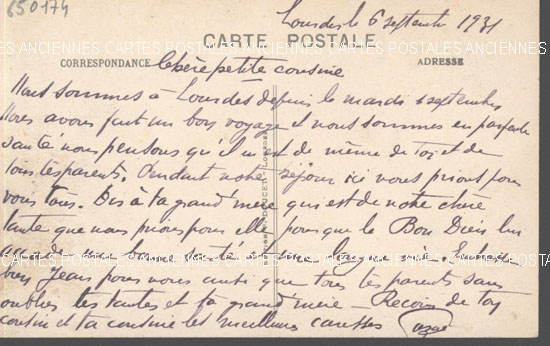 650174
Lourdes le 6 septembre 1931
CARTE POSTALE
CARTES POSTALES ANCIENNES CARTES POSTALES ANCIENNES CARTES POSTALES ANCIENNES
CORRESPONDANCE
ADRESSE
Chère petite cousine
Nous sommes à Lourdes depuis le mardi septembre
Nous avons fait un bon voyage et nous sommes en parfaite
santé nous pensons qu'il en est de même de toi et de
tous tes parents. Pendant notre séjour ici nous prions pour
vous tous. Dis à ta grand mère qui est de notre chère
tante que nous prions pour elle pour que le Bon Dieu lui
accorde une
bien Jean pour nous ainsi que tous tes parents sans
oublier tes tantes et ta grand mère - Reçois de ton
cousin et ta cousine les meilleures caresses
DOUCET